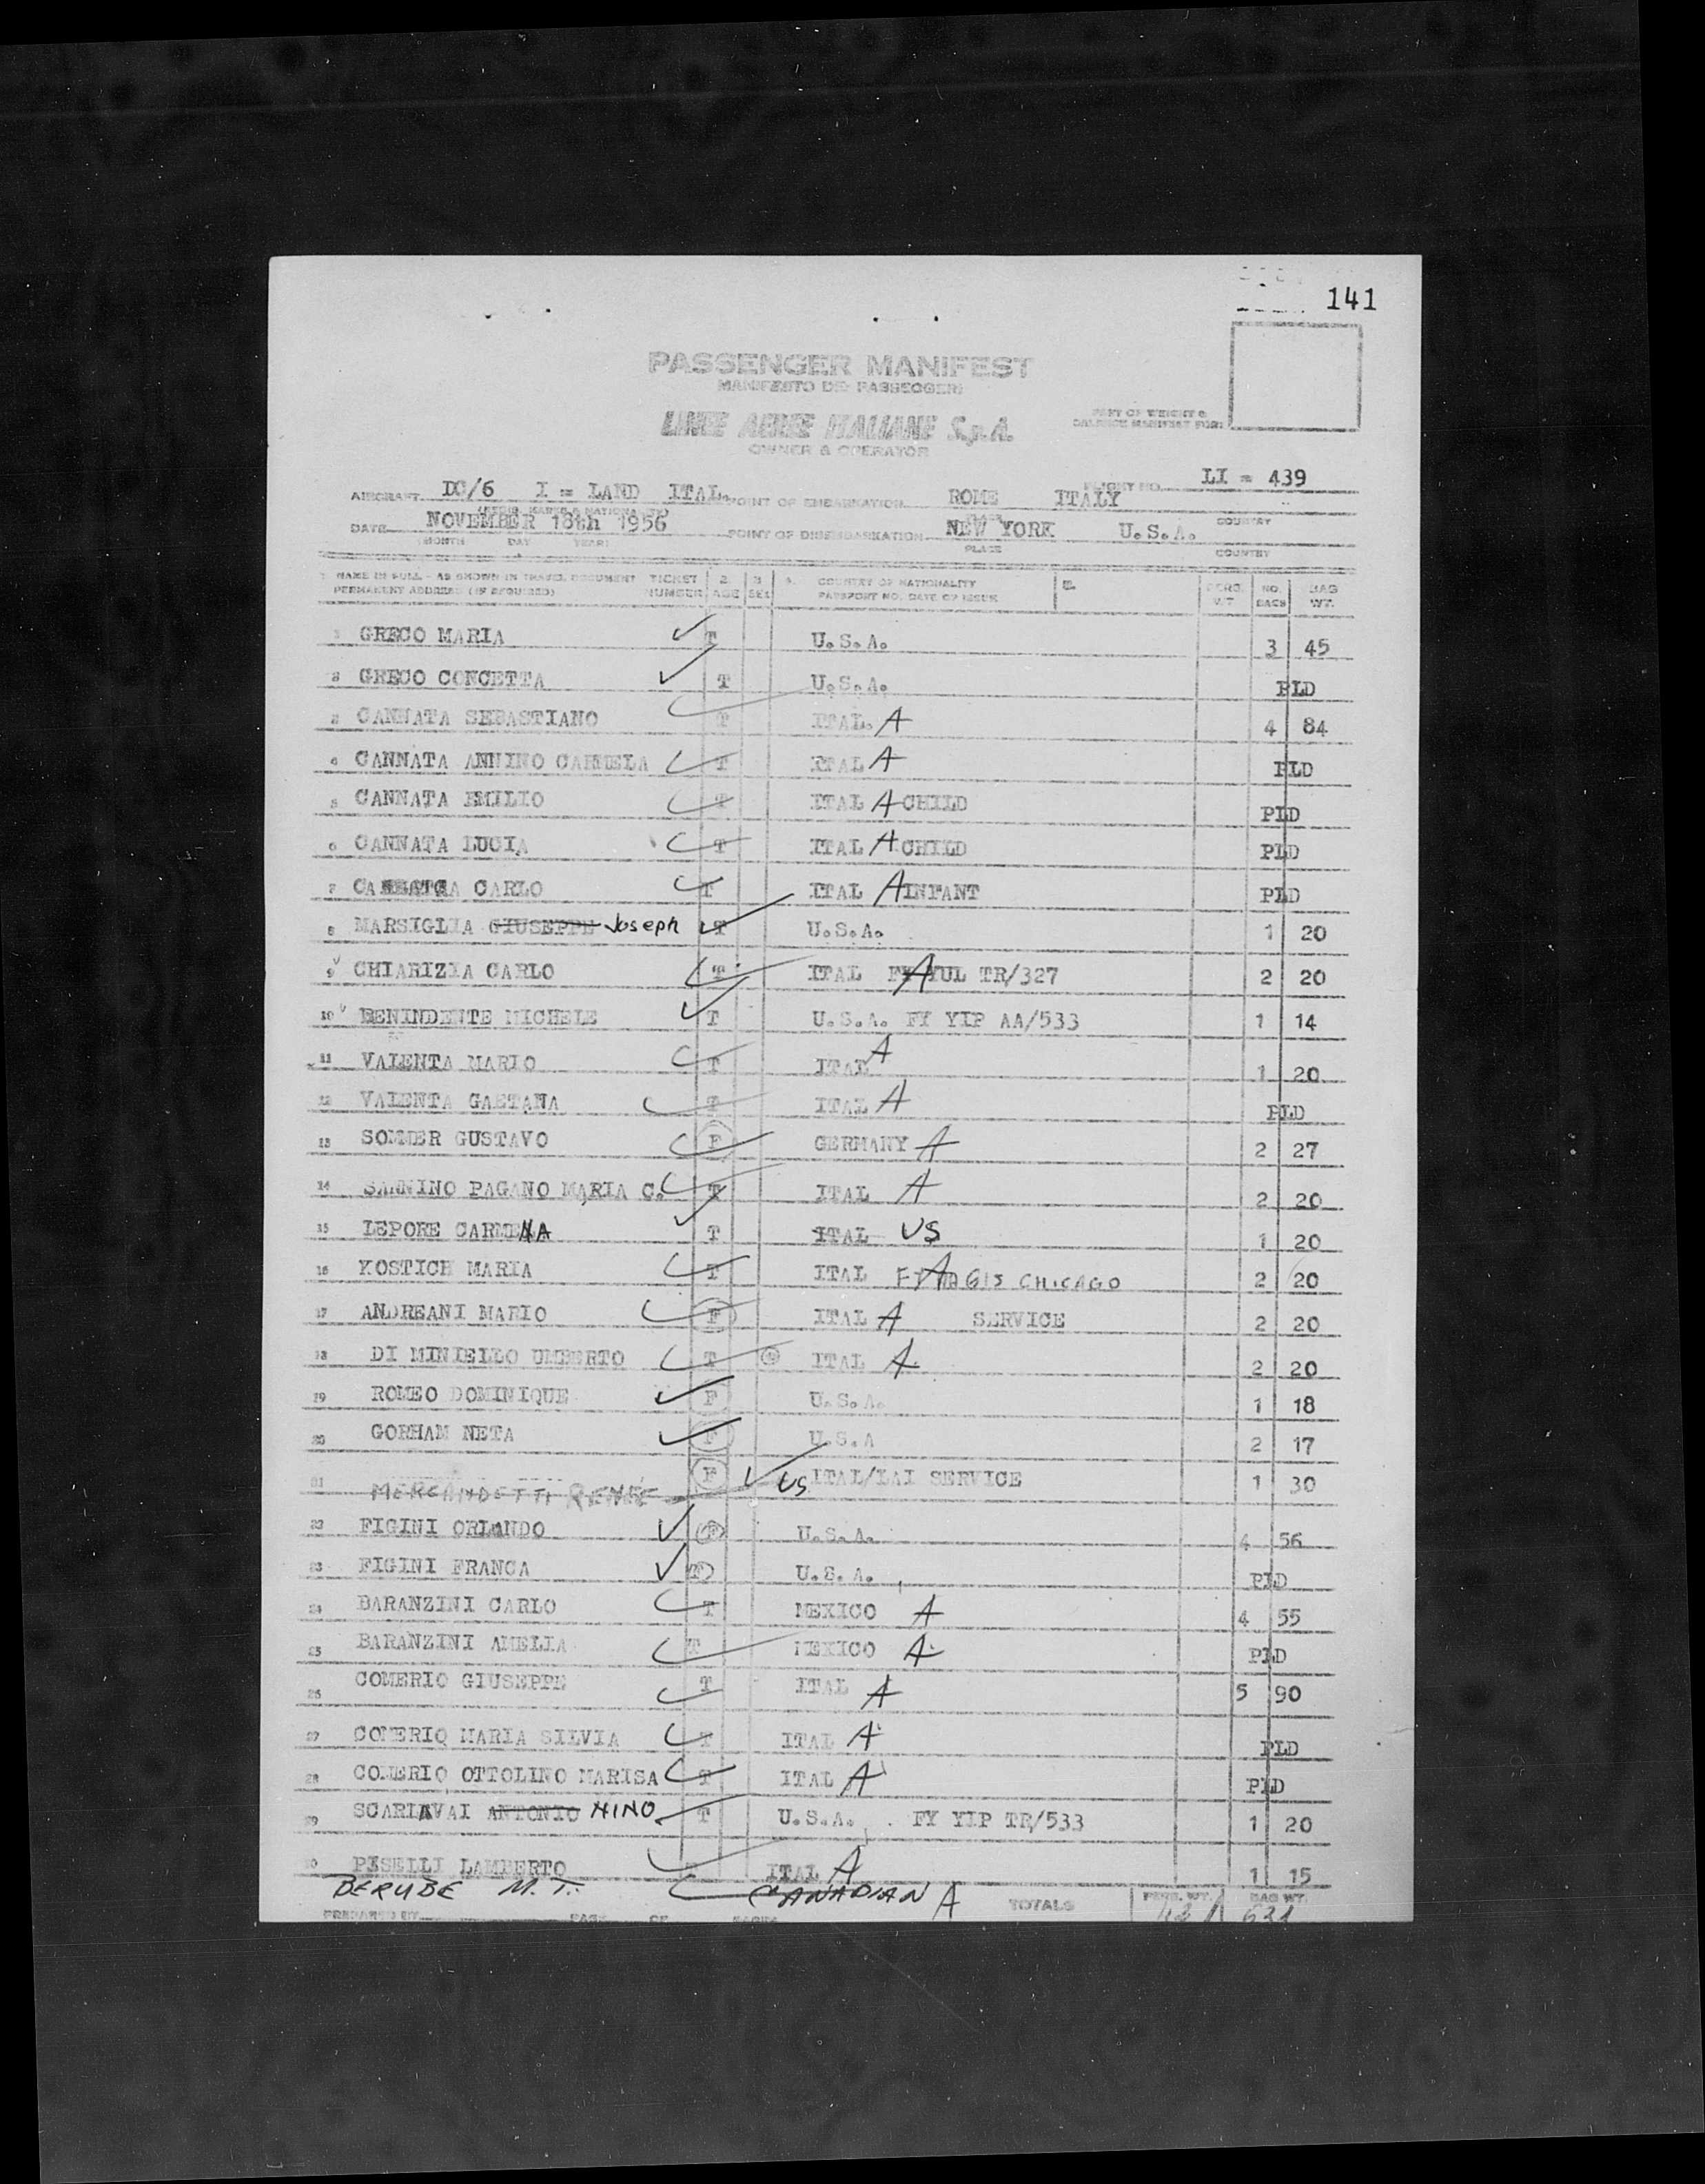 141
PASSENGER MANIFEST
MANIFESTO DEI PASSEGGERI
LINEE AEREE ITALIANE S.p.A.
OWNER & OPERATOR
PART OF WEIGHT & BALANCE MANIFEST FOR:
AIRCRAFT DC/6 I = LAND ITAL. POINT OF EMBARKATION ROME ITALY FLIGHT NO. LI = 439
DATE NOVEMBER 18th 1956 POINT OF DISEMBARKATION NEW YORK U.S.A. COUNTRY
(MONTH DAY YEAR) PLACE COUNTRY
1 NAME IN FULL - AS SHOWN IN TRAVEL DOCUMENT TICKET 2 3 4. COUNTRY OF NATIONALITY 5. PERS. NO. BAG
PERMANENT ADDRESS (IF REQUIRED) NUMBER AGE SEX PASSPORT NO. DATE OF ISSUE WT. BAGS WT.
1 GRECO MARIA T U.S.A. 3 45
2 GRECO CONCETTA T U.S.A. PLD
3 CANNATA SEBASTIANO T ITAL. A 4 84
4 CANNATA ANNINO CARMELA T ITAL A PLD
5 CANNATA EMILIO T ITAL A CHILD PLD
6 CANNATA LUCIA T ITAL A CHILD PLD
7 CARLO T ITAL A INFANT PLD
8 MARSIGLIA GIUSEPPE Joseph T U.S.A. 1 20
9 CHIARIZIA CARLO T ITAL FY A YUL TR/327 2 20
10 BENINDENTE MICHELE T U.S.A. FY YIP AA/533 1 14
11 VALENTA MARIO T ITAL A 1 20
12 VALENTA GAETANA T ITAL A PLD
13 SOMMER GUSTAVO F GERMANY A 2 27
14 SANNINO PAGANO MARIA C. T ITAL A 2 20
15 LEPORE CARMENA T ITAL US 1 20
16 KOSTICH MARIA T ITAL A CHICAGO 2 20
17 ANDREANI MARIO F ITAL A SERVICE 2 20
18 DI MINIELLO UMBERTO T ITAL A 2 20
19 ROMEO DOMINIQUE F U.S.A. 1 18
20 GORHAM NETA F U.S.A 2 17
21 MERCANDETTI RENÉE F US ITAL/LAI SERVICE 1 30
22 FIGINI ORLANDO F U.S.A. 4 56
23 FIGINI FRANCA F U.S.A. PLD
24 BARANZINI CARLO T MEXICO A 4 55
25 BARANZINI AMELIA T MEXICO A PLD
26 COMERIO GIUSEPPE T ITAL A 5 90
27 COMERIO MARIA SILVIA T ITAL A PLD
28 COMERIO OTTOLINO MARISA T ITAL A PLD
29 SCARLAVAI ANTONIO NINO T U.S.A. FY YIP TR/533 1 20
30 PISELLI LAMBERTO ITAL A 1 15
BERUBE M.T. CANADIAN A TOTALS PERS. WT. BAG WT.
PREPARED BY PAGE OF PAGES